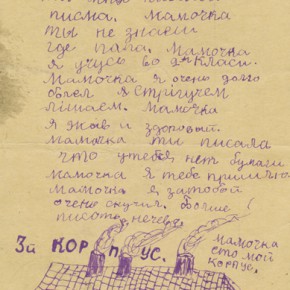 писма. Мамочка
ты не знаеш
где папа. Мамочка
я учусь во классе.
Мамочка я очень долго
болел я Стрігучем
лішаем. Мамочка
Я жив и здоровый.
Мамочка ты писала
что у тебя нет бумаги
Мамочка я тебе пришлю
Мамочка я затобой
очень скучил. Больше
писать нечево!
3й КОРПУС.
Мамочка
ето мой
корпус.